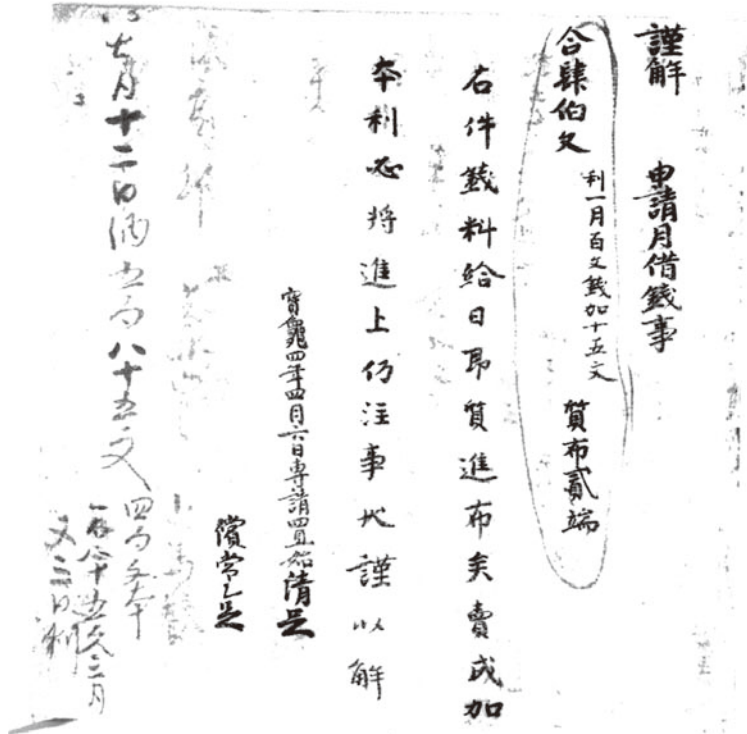 謹解 申請月借銭事
合肆伯文 利一月百文銭加十五文 質布貳端
右件銭料給日即質進布矣賣成加
本利必将進上仍注事状謹以解
寳亀四年四月六日専請 清足
償常乙足
七月十二日納五百八十五文 四百文本
一百八十五文三月
又三日利